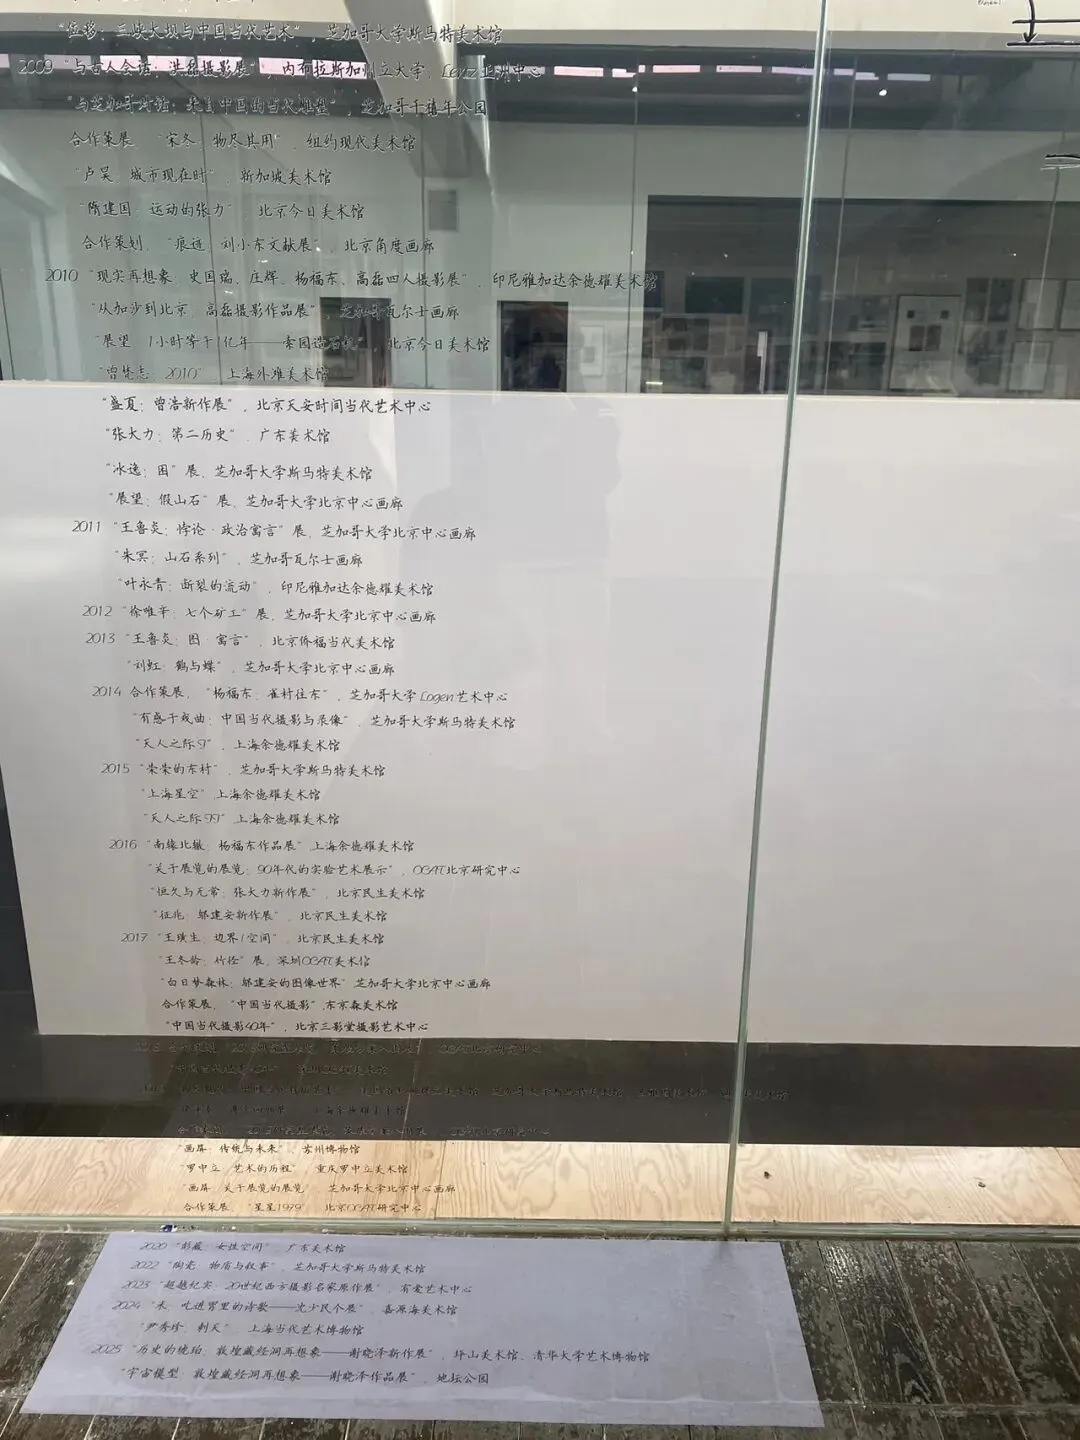 "位移：三峡大坝与中国当代艺术"，芝加哥大学斯马特美术馆
2009 "与古人会话：洪磊摄影展"，内布拉斯加州立大学，Lenz亚洲中心
"与芝加哥对话：来自中国的当代雕塑"，芝加哥千禧年公园
合作策展，"宋冬：物尽其用"，纽约现代美术馆
"卢昊：城市现在时"，新加坡美术馆
"隋建国：运动的张力"，北京今日美术馆
合作策划，"痕迹：刘小东文献展"，北京角度画廊
2010 "现实再想象：史国瑞、庄辉、杨福东、高磊四人摄影展"，印尼雅加达余德耀美术馆
"从加沙到北京：高磊摄影作品展"，芝加哥瓦尔士画廊
"展望：1小时等于1亿年——素园造石机"，北京今日美术馆
"曾梵志：2010"，上海外滩美术馆
"盛夏：曾浩新作展"，北京天安时间当代艺术中心
"张大力：第二历史"，广东美术馆
"冰逸：困"展，芝加哥大学斯马特美术馆
"展望：假山石"展，芝加哥大学北京中心画廊
2011 "王鲁炎：悖论·政治寓言"展，芝加哥大学北京中心画廊
"朱冥：山石系列"，芝加哥瓦尔士画廊
"叶永青：断裂的流动"，印尼雅加达余德耀美术馆
2012 "徐唯辛：七个矿工"展，芝加哥大学北京中心画廊
2013 "王鲁炎：图·寓言"，北京侨福当代美术馆
"刘虹：鹤与蝶"，芝加哥大学北京中心画廊
2014 合作策展，"杨福东：雀村往东"，芝加哥大学Logan艺术中心
"有感于戏曲：中国当代摄影与录像"，芝加哥大学斯马特美术馆
"天人之际I"，上海余德耀美术馆
2015 "荣荣的东村"，芝加哥大学斯马特美术馆
"上海星空"，上海余德耀美术馆
"天人之际II"，上海余德耀美术馆
2016 "南辕北辙：杨福东作品展"，上海余德耀美术馆
"关于展览的展览：90年代的实验艺术展示"，OCAT北京研究中心
"恒久与无常：张大力新作展"，北京民生美术馆
"征兆：邬建安新作展"，北京民生美术馆
2017 "王璜生：边界/空间"，北京民生美术馆
"王冬龄：竹径"展，深圳OCAT美术馆
"白日梦森林：邬建安的图像世界"，芝加哥大学北京中心画廊
合作策展，"中国当代摄影"，东京森美术馆
"中国当代摄影40年"，北京三影堂摄影艺术中心
"画屏：传统与未来"，苏州博物馆
"罗中立：艺术的历程"，重庆罗中立美术馆
"画屏：关于展览的展览"，芝加哥大学北京中心画廊
合作策展，"星星1979"，北京OCAT研究中心
2020 "彭薇：女性空间"，广东美术馆
2022 "陶瓷：物质与叙事"，芝加哥大学斯马特美术馆
2023 "超越纪实：20世纪西方摄影名家原作展"，有爱艺术中心
2024 "米：吃进胃里的诗歌——沈少民个展"，嘉源海美术馆
"尹秀珍：刺天"，上海当代艺术博物馆
2025 "历史的琥珀：敦煌藏经洞再想象——谢晓泽新作展"，坪山美术馆、清华大学艺术博物馆
"宇宙模型：敦煌藏经洞再想象——谢晓泽作品展"，地坛公园